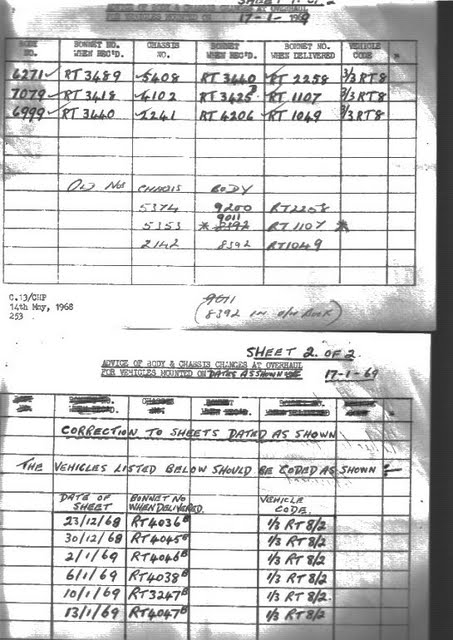 SHEET 1. OF 2
ADVICE OF BODY & CHASSIS CHANGES AT OVERHAUL
FOR VEHICLES MOUNTED ON 17-1-1969
BODY NO. BONNET NO. WHEN REC'D. CHASSIS NO. BONNET WHEN REC'D. BONNET NO. WHEN DELIVERED VEHICLE CODE
6271 ✓ RT 3489 ✓ 5408 RT 3440 RT 2258 3/3 RT8
7079 ✓ RT 3418 ✓ 4102 RT 3425B RT 1107 3/3 RT8
6999 ✓ RT 3440 ✓ 1241 RT 4206 RT 1049 3/3 RT8
OLD NOS CHASSIS BODY
5374 9200 RT2258
9011
5353 * 8392 RT 1107 *
2142 8392 RT1049
C.13/CHP
14th May, 1968
253
9011
(8392 IN O/H BOOK)
SHEET 2. OF 2.
ADVICE OF BODY & CHASSIS CHANGES AT OVERHAUL
FOR VEHICLES MOUNTED ON DATES AS SHOWN 17-1-69
CORRECTION TO SHEETS DATED AS SHOWN
THE VEHICLES LISTED BELOW SHOULD BE CODED AS SHOWN :-
DATE OF SHEET BONNET NO WHEN DELIVERED. VEHICLE CODE.
23/12/68 RT4036B 1/3 RT 8/2
30/12/68 RT4045B 1/3 RT 8/2
2/1/69 RT4046B 1/3 RT 8/2
6/1/69 RT4038B 1/3 RT 8/2
10/1/69 RT3247B 1/3 RT 8/2.
13/1/69 RT4047B 1/3 RT 8/2